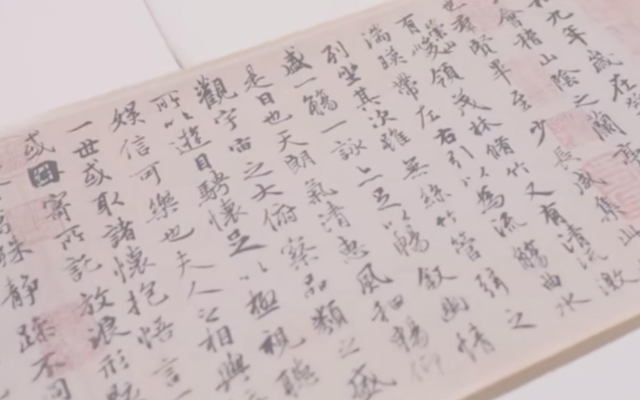 和九年歲在
會稽山陰之蘭亭
也羣賢畢至少長咸集此
有崇山峻領茂林脩竹又有清流激
湍暎帶左右引以為流觴曲水
列坐其次雖無絲竹管弦之
盛一觴一詠亦足以暢叙幽情
是日也天朗氣清惠風和暢仰
觀宇宙之大俯察品類之盛
所以遊目騁懷足以極視聽
娛信可樂也夫人之相與
一世或取諸懷抱悟言一
或因寄所託放浪形骸
殊靜躁不同